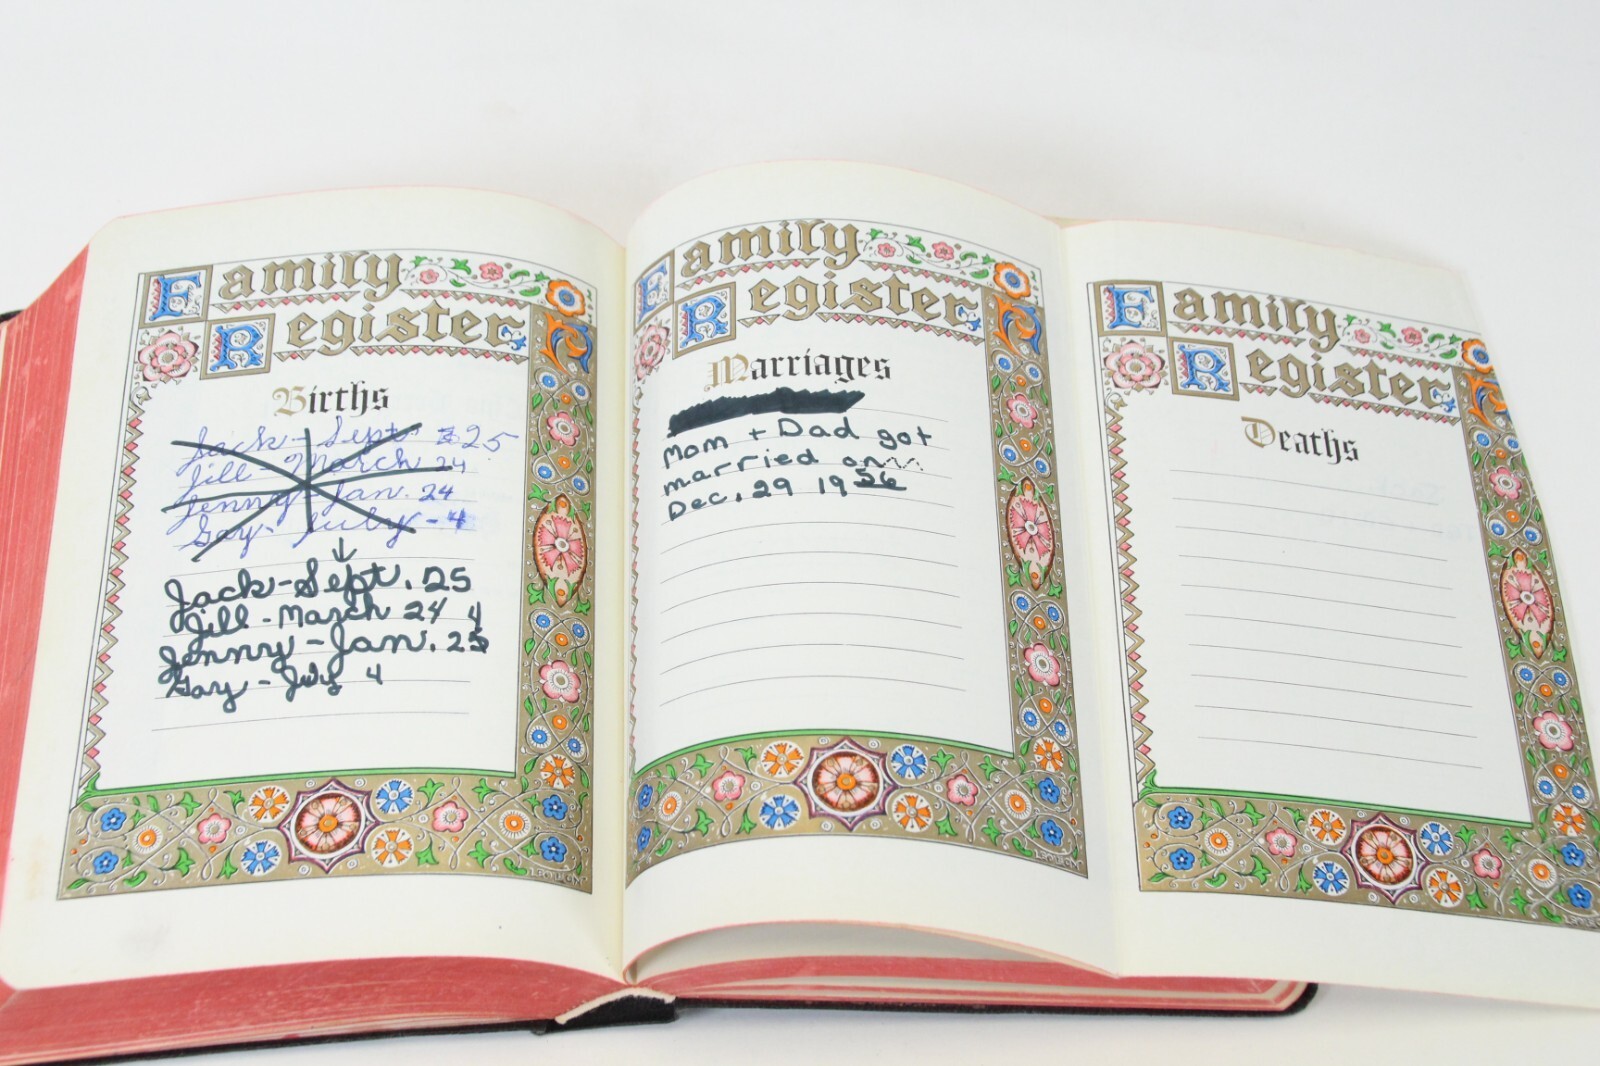 Family
Register
Births
Jack - Sept 25
Jill - March 24
Jenny - Jan. 24
Gay - July - 4
Jack - Sept. 25
Jill - March 24 4
Jenny - Jan. 25
Gay - July 4
Family
Register
Marriages
Mom + Dad got
married on
Dec. 29 1956
Family
Register
Deaths